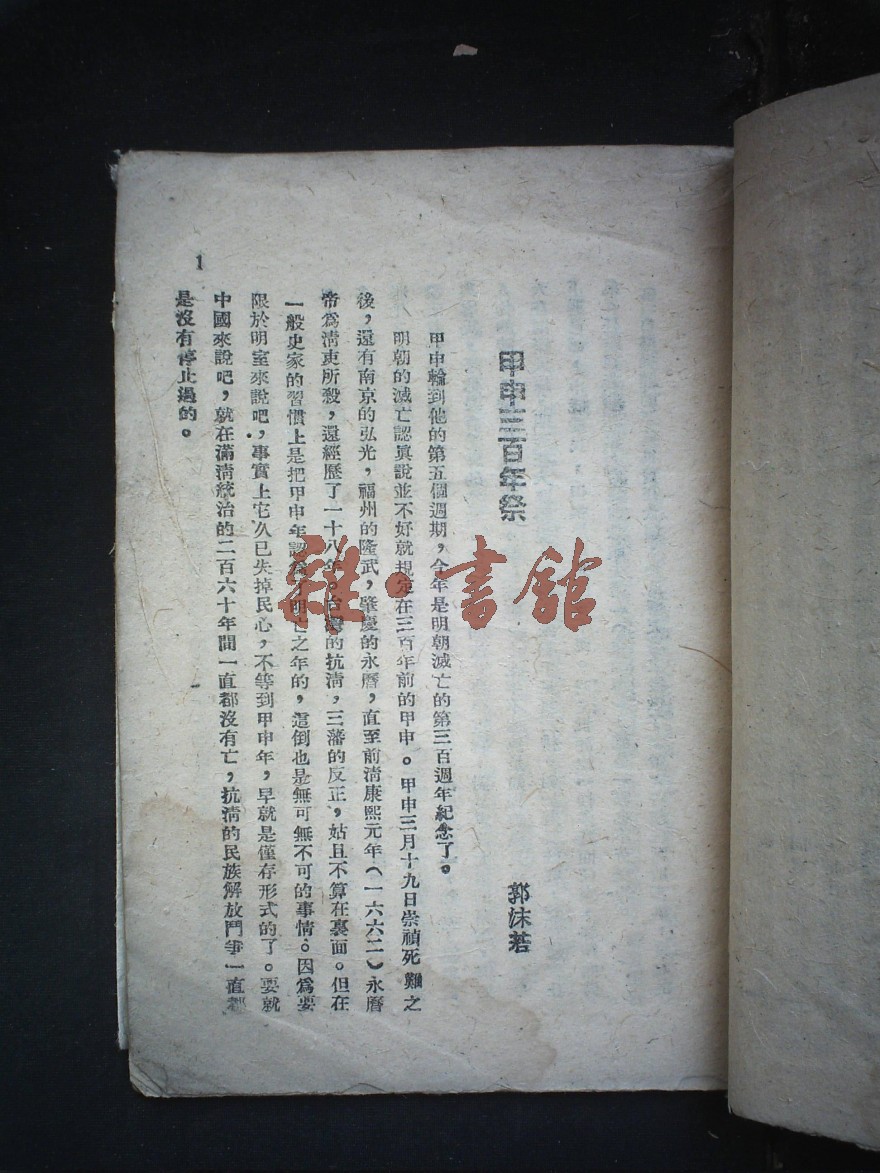 甲申三百年祭
郭沫若
甲申輪到他的第五個週期，今年是明朝滅亡的第三百週年紀念了。
明朝的滅亡認眞說並不好就規定在三百年前的甲申。甲申三月十九日崇禎死難之
後，還有南京的弘光，福州的隆武，肇慶的永曆，直至前淸康熙元年（一六六二）永曆
帝爲淸吏所殺，還經歷了一十八年。台灣的抗淸，三藩的反正，姑且不算在裏面。但在
一般史家的習慣上是把甲申年認爲了明亡之年的，這倒也是無可無不可的事情。因爲要
限於明室來說吧，事實上它久已失掉民心，不等到甲申年，早就是僅存形式的了。要就
中國來說吧，就在滿淸統治的二百六十年間一直都沒有亡，抗淸的民族解放鬥爭一直都
是沒有停止過的。
1
雜·書館